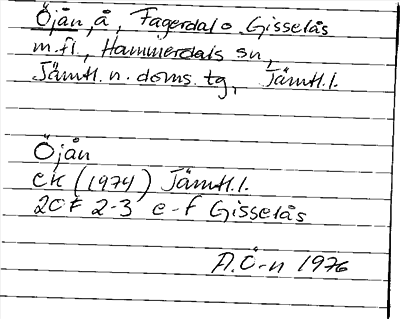 Öjån, å, Fagerdal o Gisselås
m.fl., Hammerdals sn,
Jämtl. n. doms. tg, Jämtl. l.
Öjån
ek (1974) Jämtl. l.
20F 2-3 e-f Gisselås
A.Ö-n 1976